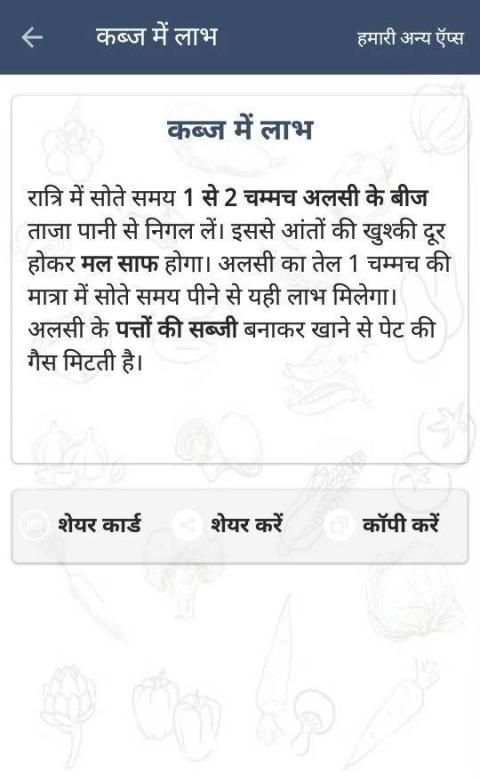 कब्ज में लाभ
हमारी अन्य ऍप्स
कब्ज में लाभ
रात्रि में सोते समय 1 से 2 चम्मच अलसी के बीज
ताजा पानी से निगल लें। इससे आंतों की खुश्की दूर
होकर मल साफ होगा। अलसी का तेल 1 चम्मच की
मात्रा में सोते समय पीने से यही लाभ मिलेगा।
अलसी के पत्तों की सब्जी बनाकर खाने से पेट की
गैस मिटती है।
शेयर कार्ड
शेयर करें
कॉपी करें